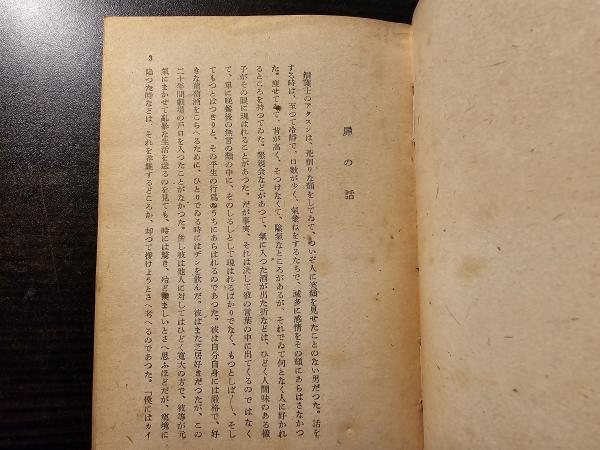 扉の話
辯護士のアタスンは、荒削りな顏をしてゐて、ついぞ人に笑顏を見せたことのない男だつた。話を
する時は、至つて冷靜で、口數が少く、氣兼ねをするたちで、滅多に感情をその顏にあらはさなかつ
た。瘦せてゐて、背が高く、そつけなくて、陰氣なところがあるが、それでゐて何となく人に好かれ
るところを持つてゐた。懇親會などがあつて、氣に入つた酒が出た折などは、ひどく人間味のある樣
子がその眼に現はれることがあつた。だが事實、それは決して彼の言葉の中に出てくるのではなく
て、單に晚餐後の無言の顏の中に、そのしるしとして現はれるばかりでなく、もつとしば〳〵、そし
てもつとはつきりと、その平生の行爲のうちにあらはれるのであつた。彼は自分自身には嚴格で、好
きな葡萄酒をこらへるために、ひとりでゐる時にはヂンを飮んだ。彼はまた芝居好きだつたが、この
二十年間劇場の戶口を入つたことがなかつた。併し彼は他人に對してはひどく寬大の方で、彼等が元
氣にまかせて亂暴な生活を送るのを見ても、時には驚き、殆ど羨ましいとさへ思ふほどだが、窮境に
陷つた時などは、それを非難するどころか、却つて援けようとさへ考へるのであつた。「僕にはカイ
3